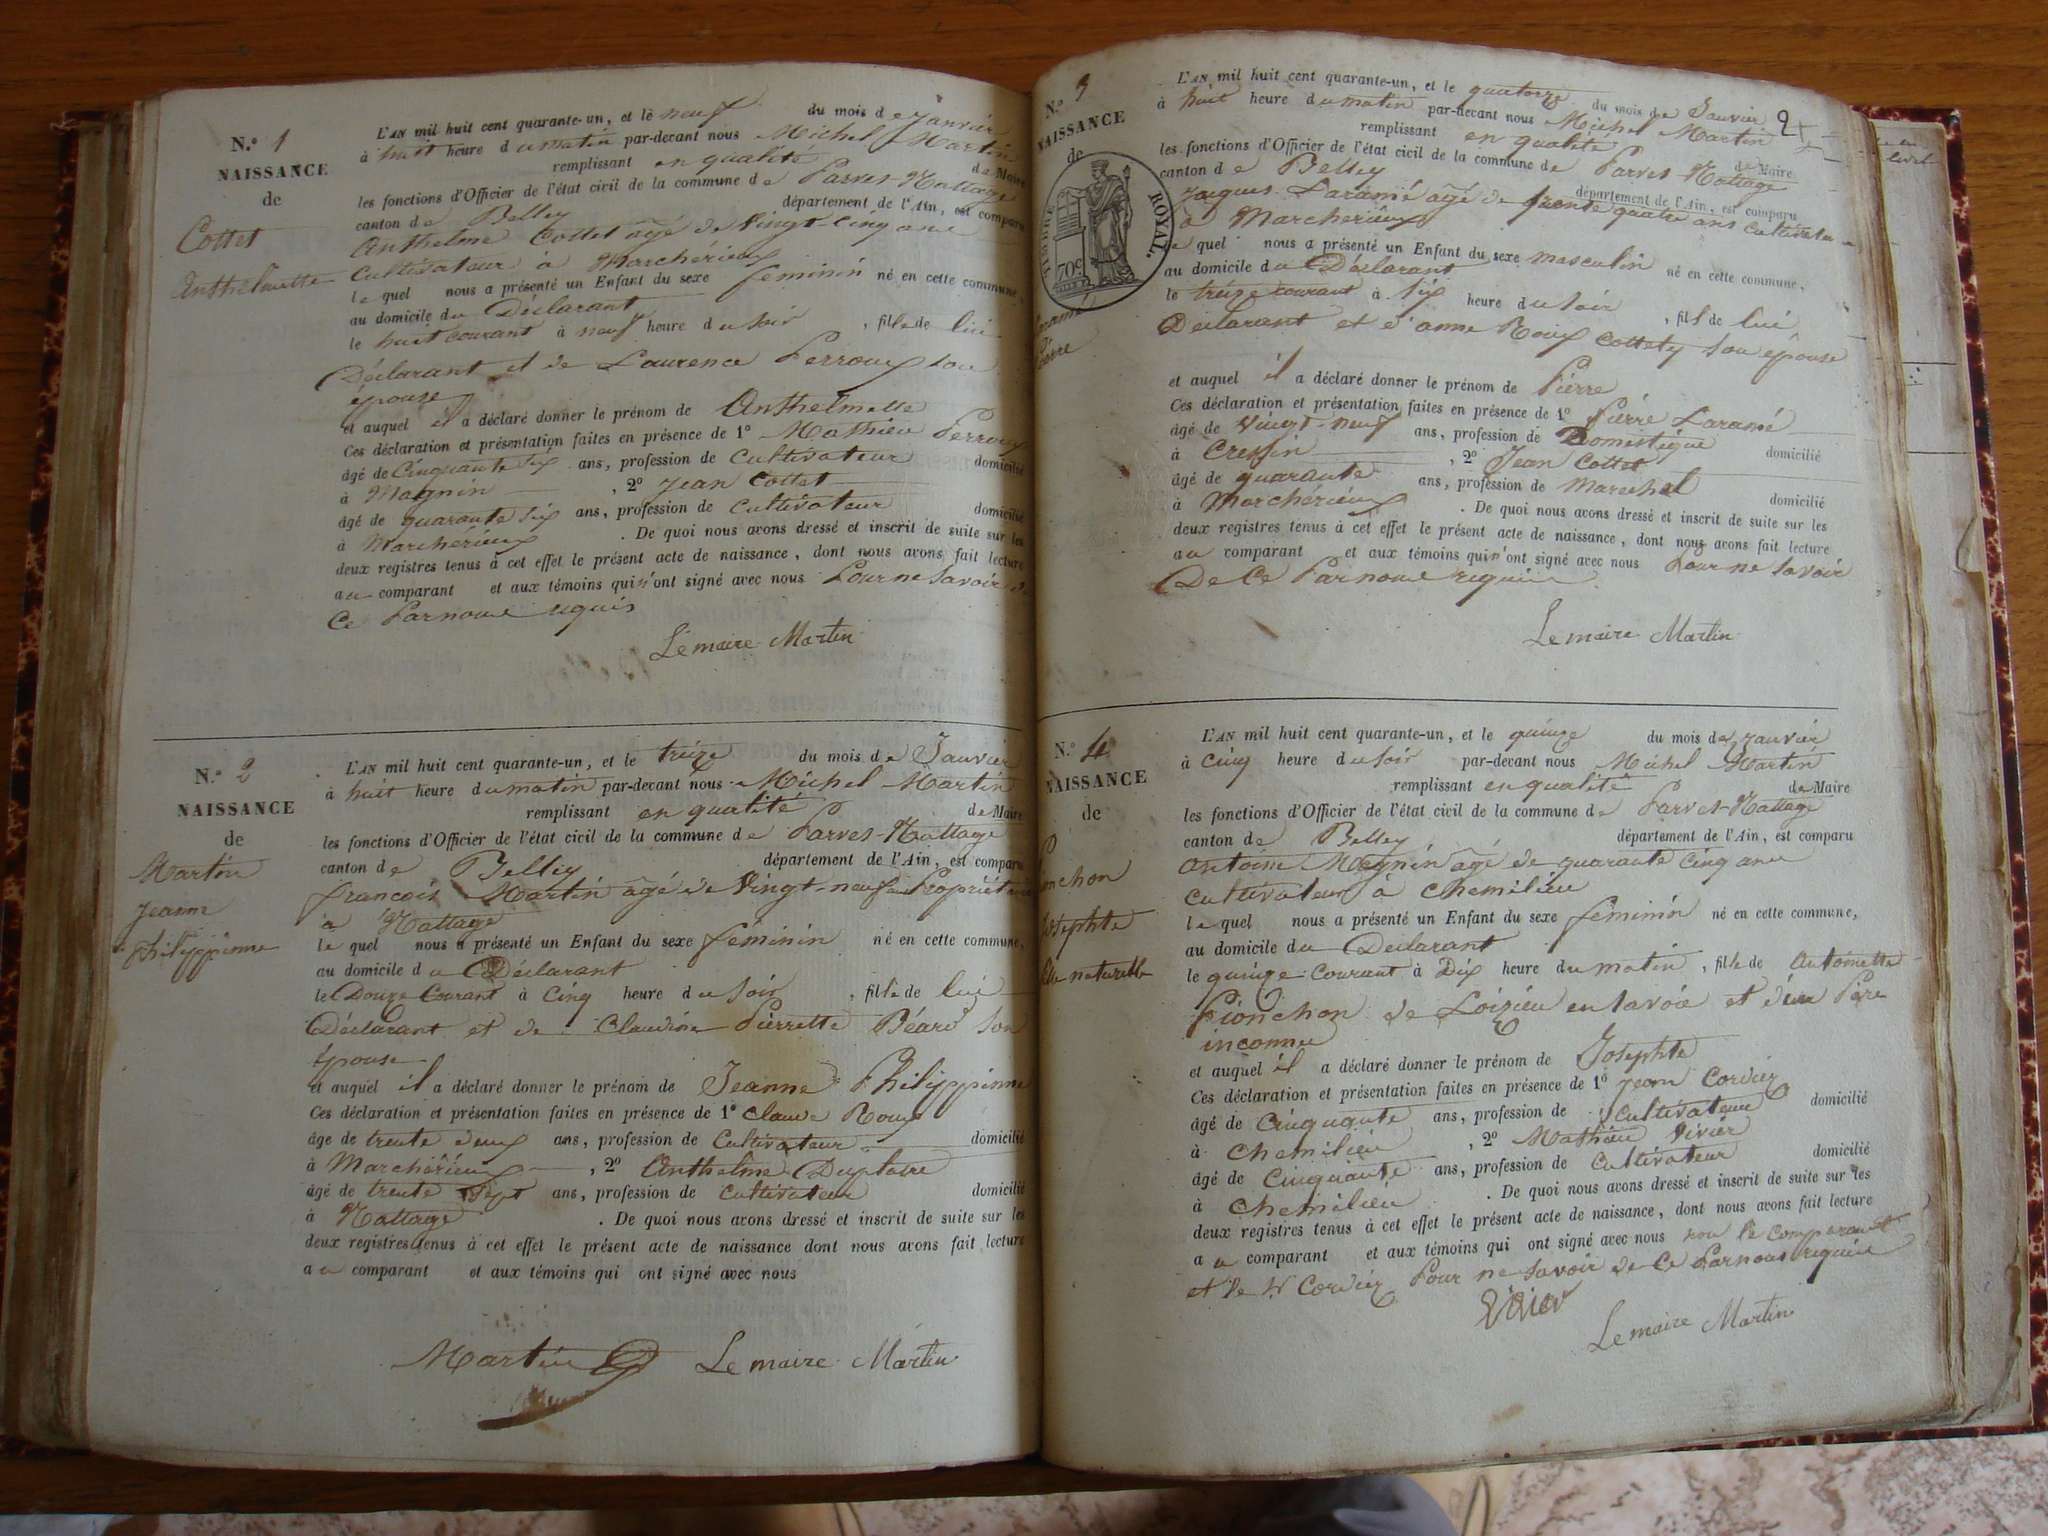 N.° 1
NAISSANCE
de
Cottet
Anthelmette
L'AN mil huit cent quarante-un, et le neuf du mois de janvier
à huit heure du matin par-devant nous Michel Martin
remplissant en qualité de Maire
les fonctions d'Officier de l'état civil de la commune de Parves-Nattage
canton de Belley département de l'Ain, est comparu
Anthelme Cottet âgé de Vingt-Cinq ans
Cultivateur à Marchérieux
le quel nous a présenté un Enfant du sexe feminin né en cette commune,
au domicile du Déclarant
le huit courant à neuf heure du soir , fille de lui
Déclarant et de Laurence Perroux son
épouse
et auquel il a déclaré donner le prénom de Anthelmette
Ces déclaration et présentation faites en présence de 1° Mathieu Perroux
âgé de Cinquante six ans, profession de Cultivateur domicilié
à Magnin , 2° Jean Cottet
âgé de quarante six ans, profession de Cultivateur domicilié
à Marcherieux . De quoi nous avons dressé et inscrit de suite sur les
deux registres tenus à cet effet le présent acte de naissance, dont nous avons fait lecture
au comparant et aux témoins qui n'ont signé avec nous Pour ne Savoir de
Ce Par nous requis
Le maire Martin
N.° 2
NAISSANCE
de
Martin
Jeanne
Philippinne
L'AN mil huit cent quarante-un, et le treize du mois de Janvier
à huit heure du matin par-devant nous Michel Martin
remplissant en qualité de Maire
les fonctions d'Officier de l'état civil de la commune de Parves-Nattage
canton de Belley département de l'Ain, est comparu
francois Martin âgé de Vingt-neuf ans Propriétaire
à Nattage
le quel nous a présenté un Enfant du sexe féminin né en cette commune,
au domicile du Déclarant
le Douze Courant à Cinq heure du soir , fille de lui
Déclarant et de Claudine Pierrette Béard Son
épouse
et auquel il a déclaré donner le prénom de Jeanne Philippinne
Ces déclaration et présentation faites en présence de 1° Claude Roux
âgé de trente deux ans, profession de Cultivateur domicilié
à Marchérieux , 2° Anthelme
âgé de trente Sept ans, profession de Cultivateur domicilié
à Nattage . De quoi nous avons dressé et inscrit de suite sur les
deux registres tenus à cet effet le présent acte de naissance dont nous avons fait lecture
au comparant et aux témoins qui ont signé avec nous
Martin Le maire Martin
N.° 3
NAISSANCE
de
TIMBRE ROYAL.
70c
Laramé
Pierre
2
L'AN mil huit cent quarante-un, et le quatorze du mois de Janvier
à huit heure du matin par-devant nous Michel Martin
remplissant en qualité de Maire
les fonctions d'Officier de l'état cicil de la commune de Parves-Nattage
canton de Belley département de l'Ain, est comparu
Jacques Laramé âgé de trente quatre ans Cultivateur
à Marcherieux
le quel nous a présenté un Enfant du sexe masculin né en cette commune,
au domicile du Déclarant
le treize courant à Six heure du soir , fils de lui
Déclarant et d'anne Roux Cottety Son épouse
et auquel il a déclaré donner le prénom de Pierre
Ces déclaration et présentation faites en présence de 1° Pierre Laramé
âgé de Vingt-neuf ans, profession de Domestique domicilié
à Cressin , 2° Jean Cottet
âgé de quarante ans, profession de Marechal domicilié
à Marchérieux . De quoi nous avons dressé et inscrit de suite sur les
deux registres tenus à cet effet le présent acte de naissance, dont nous avons fait lecture
au comparant et aux témoins qui n'ont signé avec nous Pour ne Savoir
De Ce Par nous requis
Le maire Martin
N.° 4
NAISSANCE
de
Pionchon
Josephte
fille naturelle
L'AN mil huit cent quarante-un, et le quinze du mois de janvier
à Cinq heure du Soir par-devant nous Michel Martin
remplissant en qualité de Maire
les fonctions d'Officier de l'état civil de la commune de Parves-Nattage
canton de Belley département de l'Ain, est comparu
Antoine Magnin âgé de quarante Cinq ans
Cultivateur à Chemilieu
le quel nous a présenté un Enfant du sexe féminin né en cette commune,
au domicile du Déclarant
le quinze Courant à Dix heure du matin , fille de Antoinette
Pionchon de Loisieu en Savoie et d'un Père
inconnu
et auquel il a déclaré donner le prénom de Josephte
Ces déclaration et présentation faites en présence de 1° Jean Cordier
âgé de Cinquante ans, profession de Cultivateur domicilié
à Chemilieu , 2° Mathieu Vivier
âgé de Cinquante ans, profession de Cultivateur domicilié
à Chemilieu . De quoi nous avons dressé et inscrit de suite sur les
deux registres tenus à cet effet le présent acte de naissance, dont nous avons fait lecture
au comparant et aux témoins qui ont signé avec nous non le comparant
et le Cordier Pour ne Savoir de Ce Par nous requis
Vivier
Le maire Martin